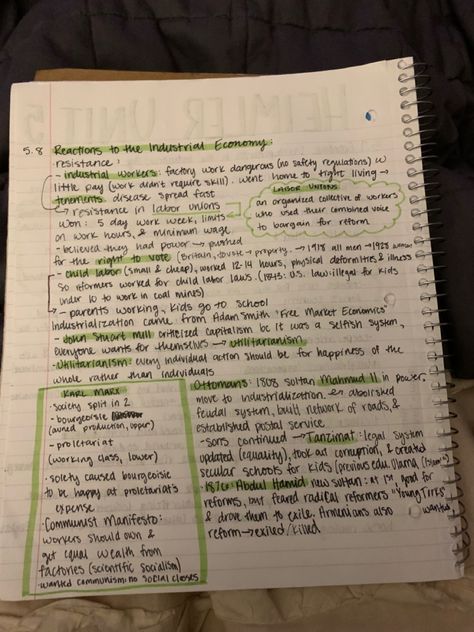 5.8 Reactions to the Industrial Economy:
· resistance:
- industrial workers: factory work dangerous (no safety regulations) w
little pay (work didn't require skill). went home to tight living →
tenements. disease spread fast
↳ resistance in labor unions
won: 5 day work week, limits
on work hours, & minimum wage
LABOR UNIONS
an organized collective of workers
who used their combined voice
to bargain for reform
- believed they had power → pushed
for the right to vote (Britain, house → property. → 1918 all men → 1928 women
- child labor (small & cheap), worked 12-14 hours, physical deformities & illness
so reformers worked for child labor laws. (1843: U.S. law: illegal for kids
under 10 to work in coal mines)
- parents working, kids go to school
Industrialization came from Adam Smith "Free Market Economics"
- John Stuart Mill criticized capitalism bc it was a selfish system,
everyone wants for themselves → utilitarianism
- Utilitarianism: every individual action should be for happiness of the
whole rather than individuals
KARL MARX
· society split in 2
- bourgeoisie
(owned production, upper)
- proletariat
(working class, lower)
· soiety caused bourgeoisie
to be happy at proletariat's
expense
· Communist Manifesto:
workers should own &
get equal wealth from
factories (scientific socialism)
· wanted communism: no social classes
Ottomans: 1808 sultan Mahmud II in power,
move to industrialization. abolished
feudal system, built network of roads, &
established postal service
- continued → Tanzimat: legal system
updated (equality), took out corruption, & created
secular schools for kids (previous edu. Ulama, (Islamic)
· 1876: Abdul Hamid new sultan: at 1st, good for
reforms, but feared radical reformers "Young Turks"
& drove them to exile. Armenians also wanted
reform → exiled/killed
HEIMLER UNIT 5